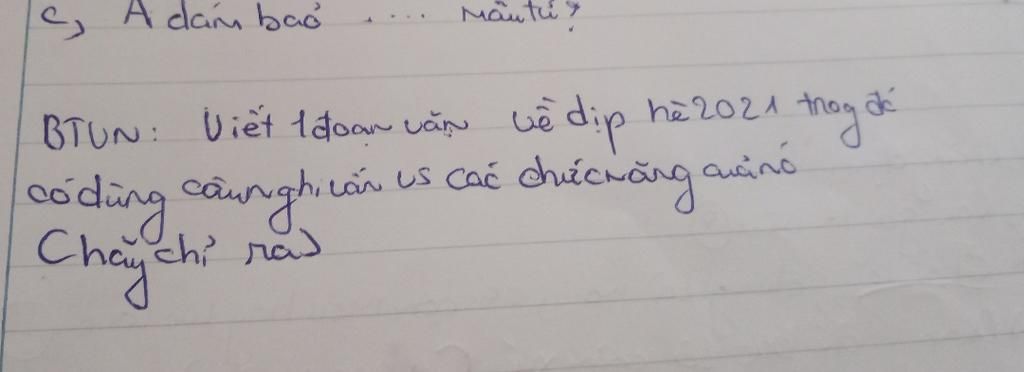 c, A dám bảo .... mẫu tử?
BTVN: Viết 1 đoạn văn về dịp hè 2021 trog đó
có dùng câu nghi vấn vs các chức năng của nó
(hãy chỉ ra)